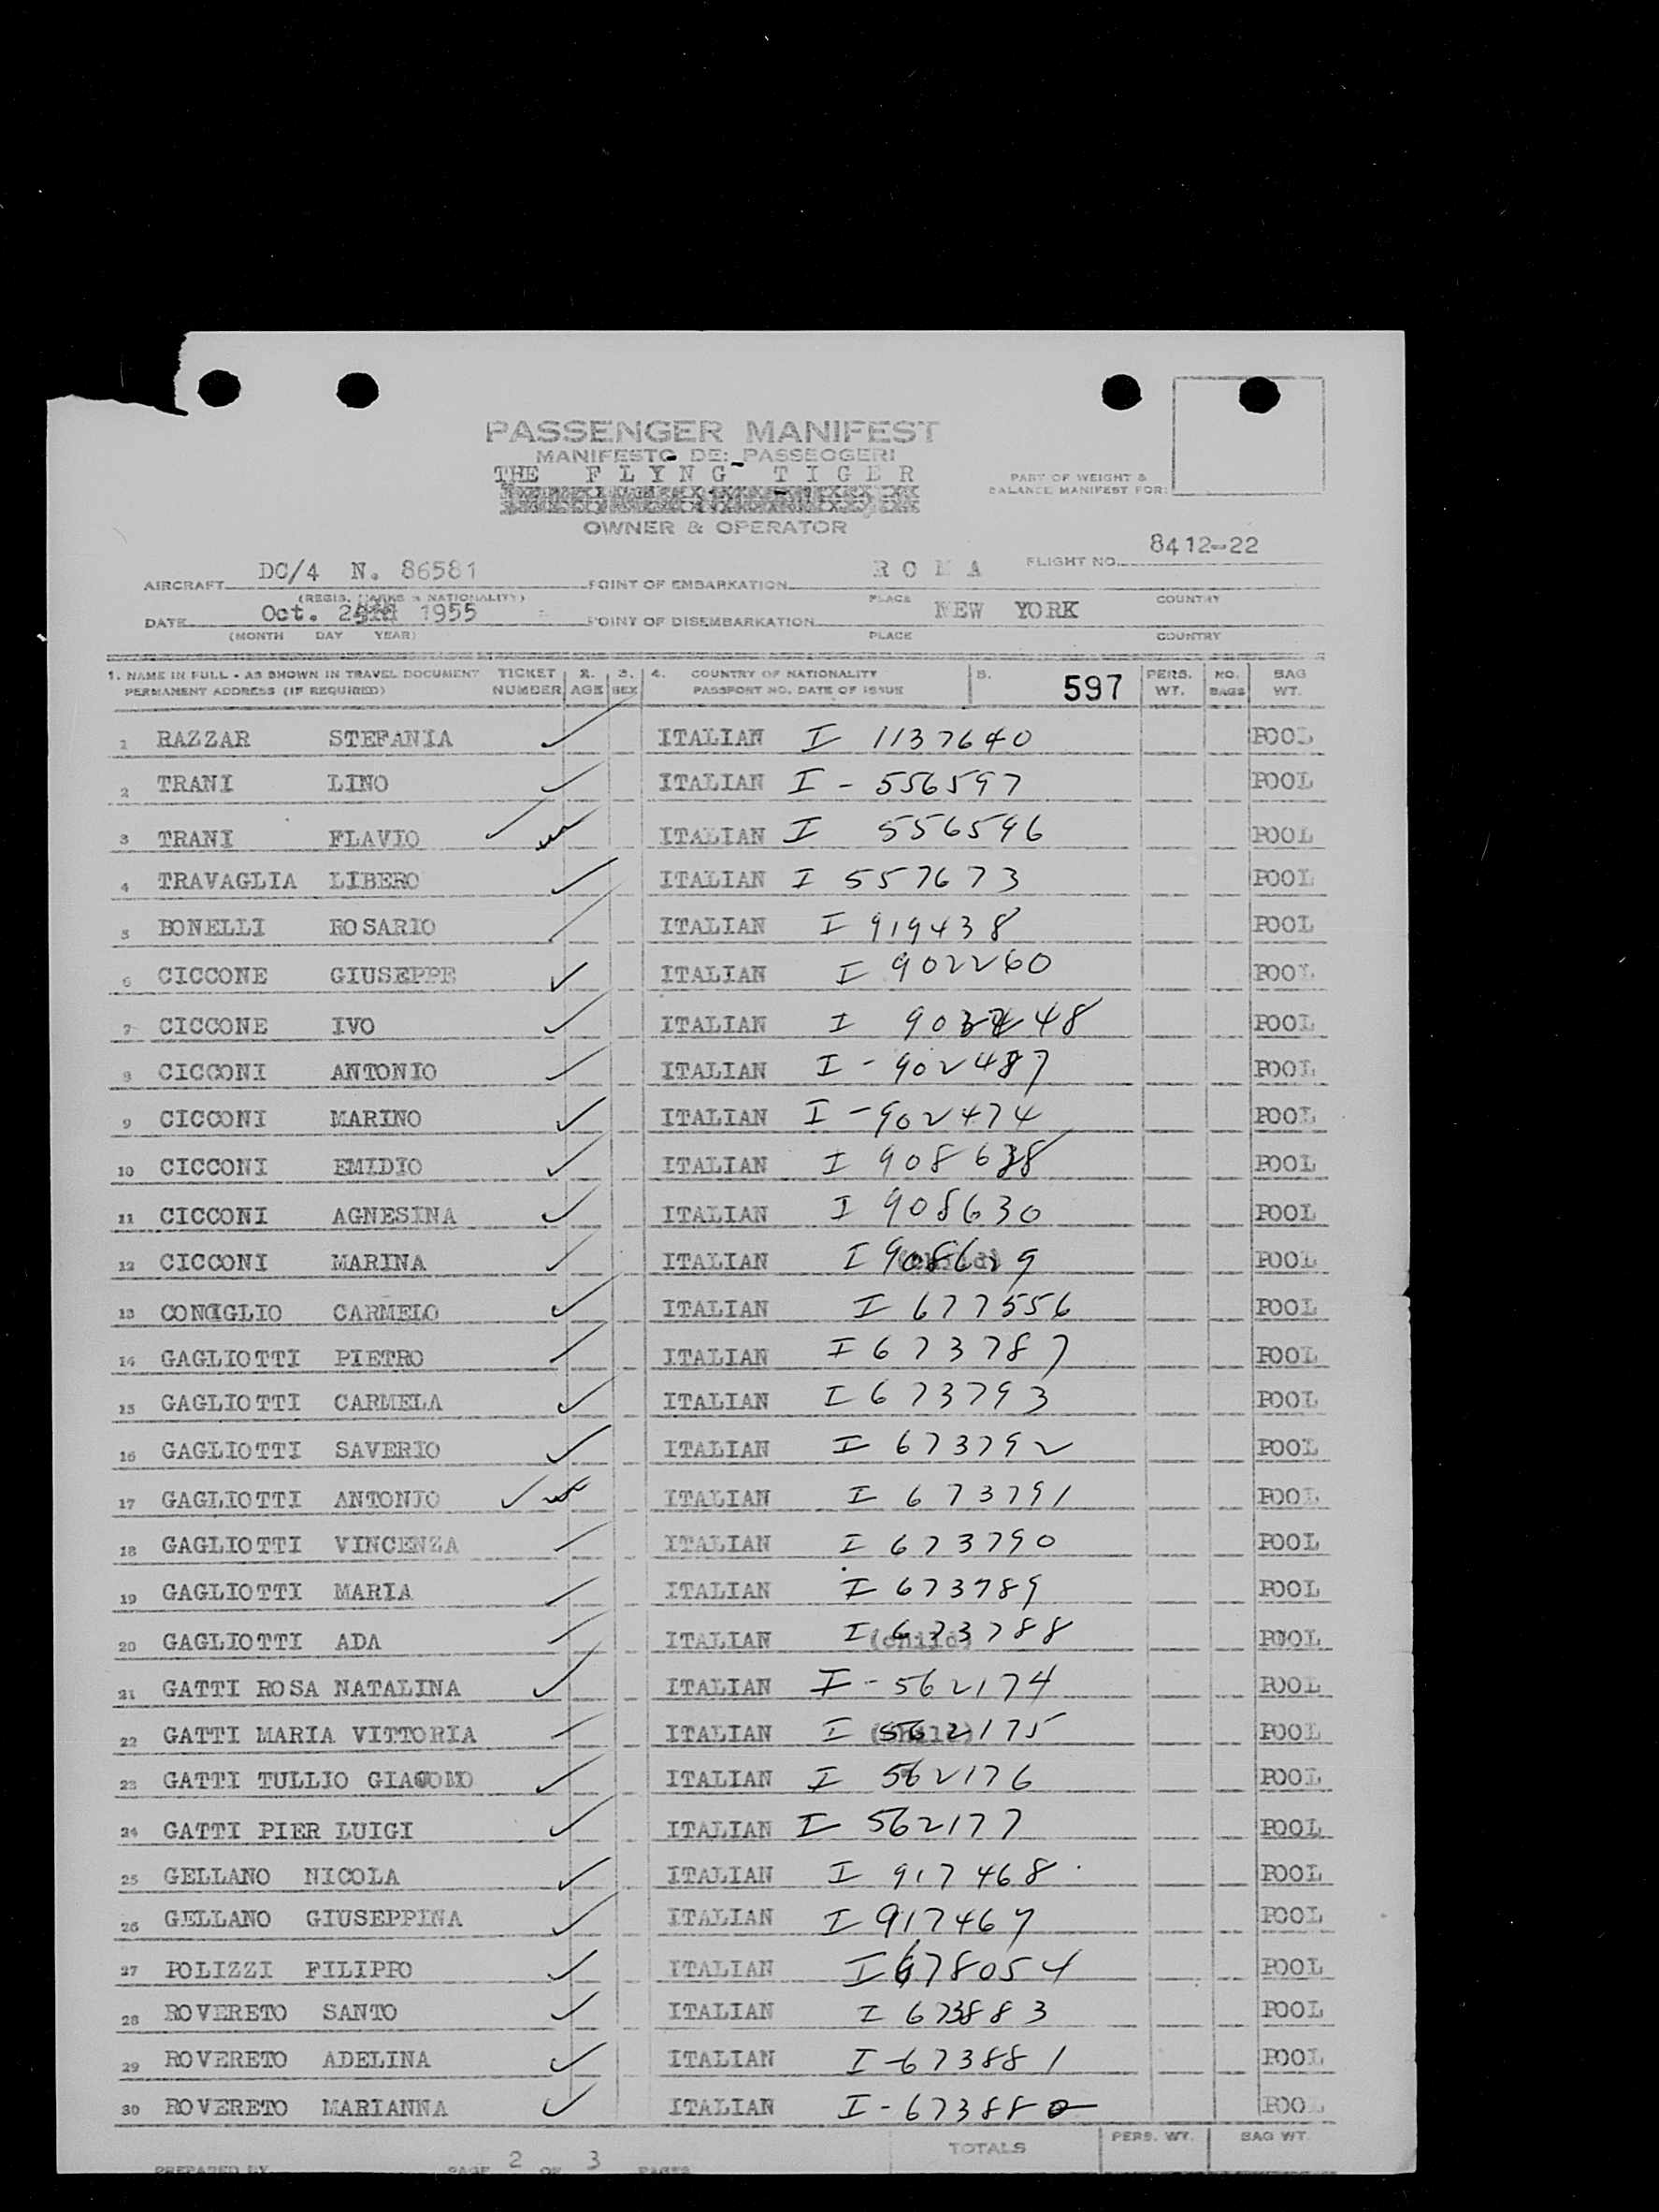 PASSENGER MANIFEST
MANIFESTO DEI PASSEGGERI
THE FLYNG TIGER
OWNER & OPERATOR
PART OF WEIGHT &
BALANCE MANIFEST FOR:
FLIGHT NO. 8412-22
AIRCRAFT DC/4 N. 86581 POINT OF EMBARKATION ROMA
(REGIS. MARKS & NATIONALITY) PLACE COUNTRY
DATE Oct. 1955 POINT OF DISEMBARKATION NEW YORK
(MONTH DAY YEAR) PLACE COUNTRY
1. NAME IN FULL - AS SHOWN IN TRAVEL DOCUMENT TICKET 2. 3. 4. COUNTRY OF NATIONALITY 5. 597 PERS. NO. BAG
PERMANENT ADDRESS (IF REQUIRED) NUMBER AGE SEX PASSPORT NO. DATE OF ISSUE WT. BAGS WT.
1 RAZZAR STEFANIA ITALIAN I 1137640 POOL
2 TRANI LINO ITALIAN I - 556597 POOL
3 TRANI FLAVIO ITALIAN I 556596 POOL
4 TRAVAGLIA LIBERO ITALIAN I 557673 POOL
5 BONELLI ROSARIO ITALIAN I 919438 POOL
6 CICCONE GIUSEPPE ITALIAN I 902260 POOL
7 CICCONE IVO ITALIAN I POOL
8 CICCONI ANTONIO ITALIAN I - 902487 POOL
9 CICCONI MARINO ITALIAN I - 902474 POOL
10 CICCONI EMIDIO ITALIAN I POOL
11 CICCONI AGNESINA ITALIAN I 908630 POOL
12 CICCONI MARINA ITALIAN (child) I 908629 POOL
13 CONIGLIO CARMELO ITALIAN I 677556 POOL
14 GAGLIOTTI PIETRO ITALIAN I 673787 POOL
15 GAGLIOTTI CARMELA ITALIAN I 673793 POOL
16 GAGLIOTTI SAVERIO ITALIAN I 673792 POOL
17 GAGLIOTTI ANTONIO ITALIAN I 673791 POOL
18 GAGLIOTTI VINCENZA ITALIAN I 673790 POOL
19 GAGLIOTTI MARIA ITALIAN I 673789 POOL
20 GAGLIOTTI ADA ITALIAN (child) I 673788 POOL
21 GATTI ROSA NATALINA ITALIAN I - 562174 POOL
22 GATTI MARIA VITTORIA ITALIAN (child) I 562175 POOL
23 GATTI TULLIO GIACOMO ITALIAN I 562176 POOL
24 GATTI PIER LUIGI ITALIAN I 562177 POOL
25 GELLANO NICOLA ITALIAN I 917468 POOL
26 GELLANO GIUSEPPINA ITALIAN I 917467 POOL
27 POLIZZI FILIPPO ITALIAN I 678054 POOL
28 ROVERETO SANTO ITALIAN I 673883 POOL
29 ROVERETO ADELINA ITALIAN I - 673881 POOL
30 ROVERETO MARIANNA ITALIAN I - 673880 POOL
TOTALS PERS. WT. BAG WT.
PREPARED BY PAGE 2 OF 3 PAGES